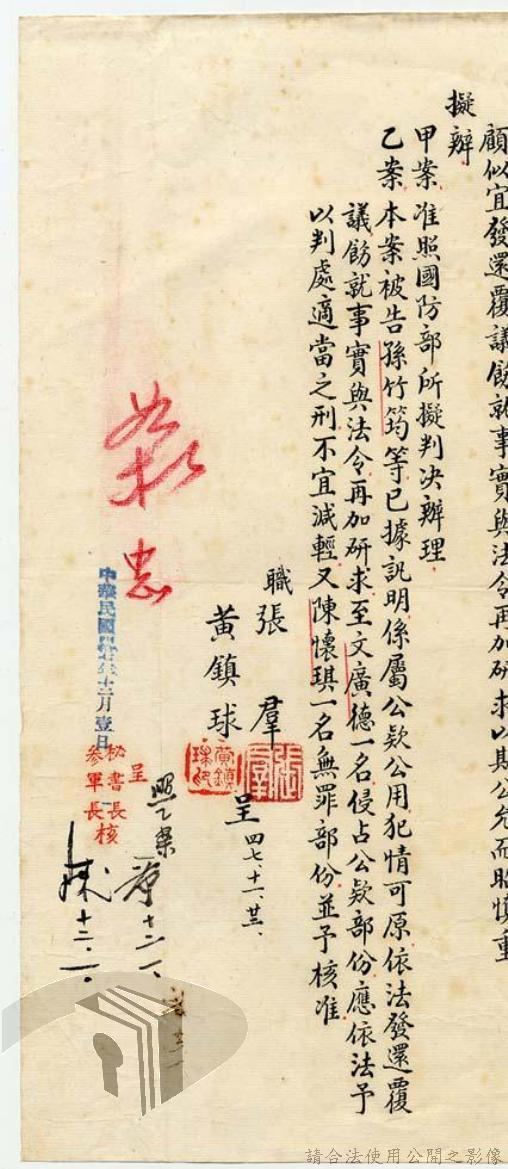 顧似宜發還覆議飭就事實與法令再加研求以期公允而昭慎重
擬辦
甲案 准照國防部所擬判決辦理
乙案 本案被告孫竹筠等已據訊明係屬公欵公用犯情可原依法發還覆
議飭就事實與法令再加研求至文廣德一名侵占公欵部份應依法予
以判處適當之刑不宜減輕又陳懷琪一名無罪部份並予核准
職張羣
黃鎮球
呈 四七、十一、廿三、
張羣
黃鎮球印
照乙案
十二、一、
呈
秘書長
參軍長
核
十二、一、
中華民國四十七年十二月壹日
請合法使用公開之影像